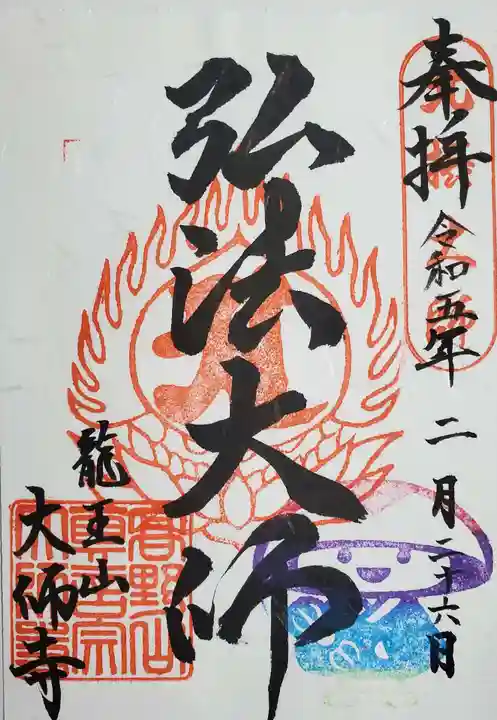 奉拝
令和五年
二月二十六日
弘法大師
龍王山
大師寺
高野山
真言宗
大師寺